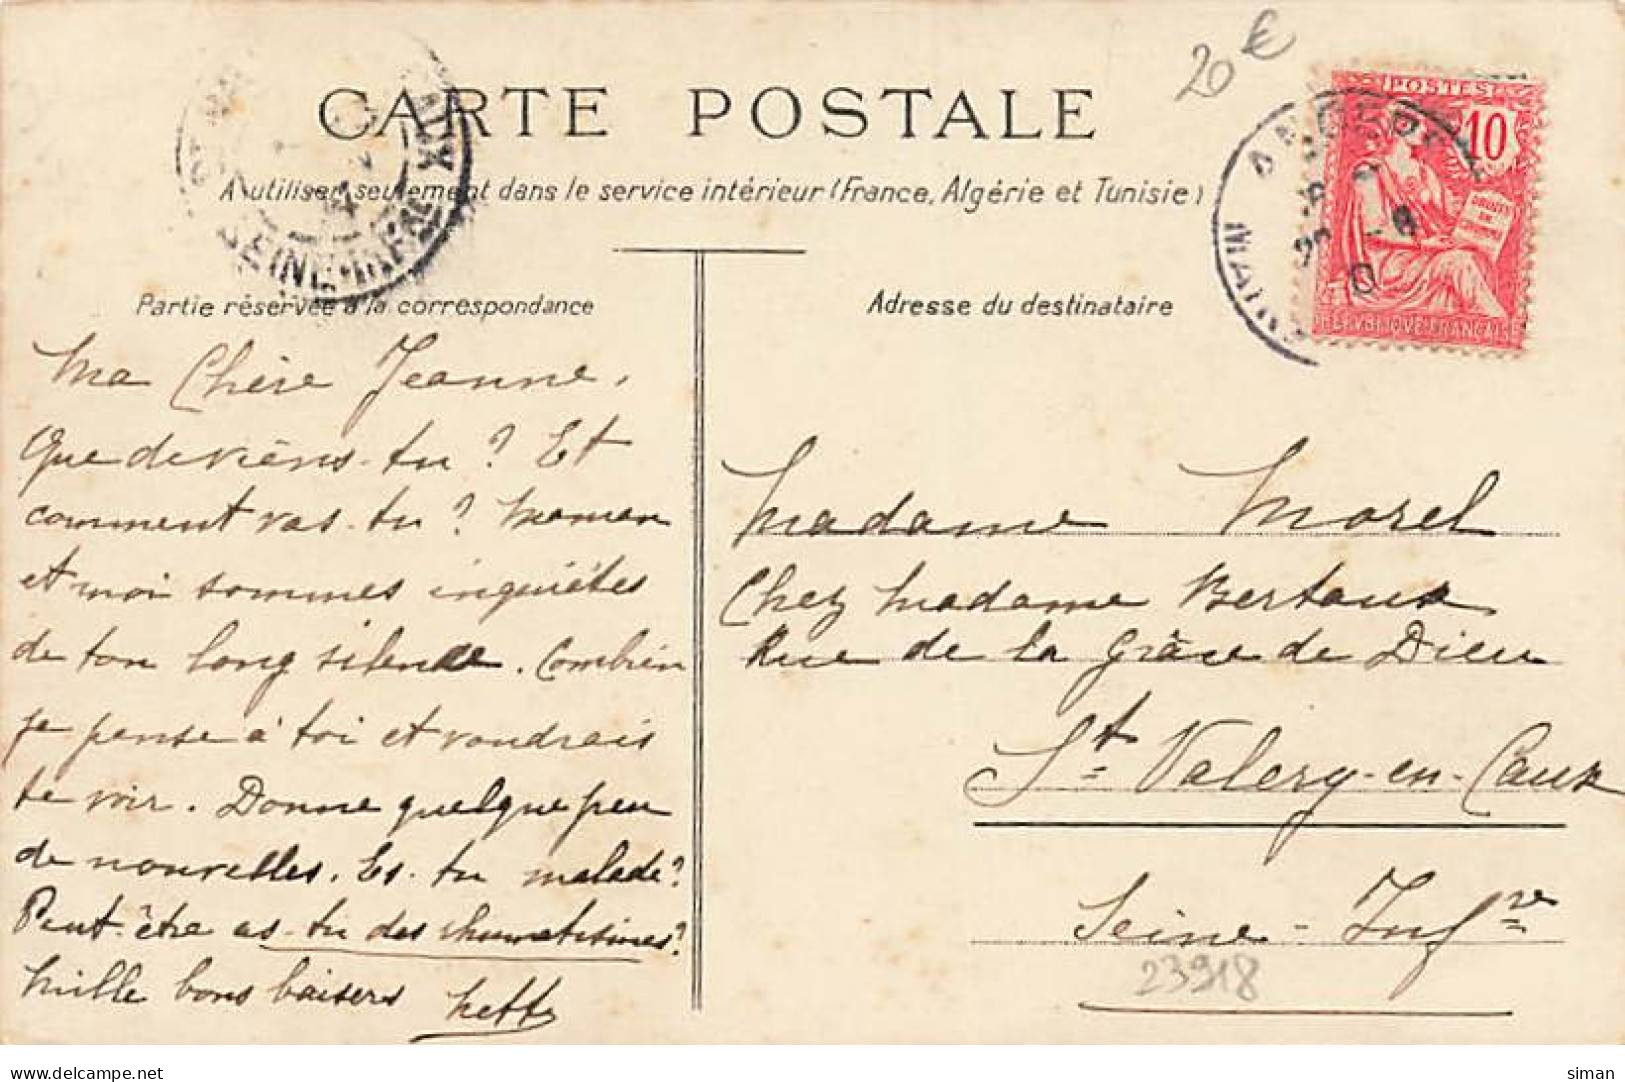 CARTE POSTALE
A utiliser seulement dans le service intérieur (France, Algérie et Tunisie)
20 €
POSTES
10
REPVBLIQVE FRANÇAISE
SEINE
Partie réservée à la correspondance
Adresse du destinataire
Ma Chère Jeanne,
Que deviens-tu ? Et
comment vas-tu ? Maman
et moi sommes inquiètes
de ton long silence. Combien
je pense à toi et voudrais
te voir. Donne quelque peu
de nouvelles. Es-tu malade ?
Peut-être as-tu des rhumatismes ?
Mille bons baisers
Madame Morel
Chez Madame Bertaux
Rue de la Grâce de Dieu
St Valery-en-Caux
Seine-Infre
23918
delcampe.net
siman